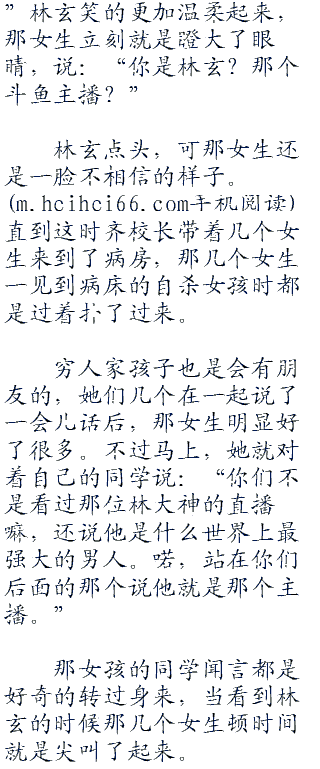 ”林玄笑的更加温柔起来，
那女生立刻就是瞪大了眼
睛，说：“你是林玄？那个
斗鱼主播？”
林玄点头，可那女生还
是一脸不相信的样子。
(m.hcihci66.com手机阅读)
直到这时齐校长带着几个女
生来到了病房，那几个女生
一见到病床的自杀女孩时都
是过着扑了过来。
穷人家孩子也是会有朋
友的，她们几个在一起说了
一会儿话后，那女生明显好
了很多。不过马上，她就对
着自己的同学说：“你们不
是看过那位林大神的直播
嘛，还说他是什么世界上最
强大的男人。喏，站在你们
后面的那个说他就是那个主
播。”
那女孩的同学闻言都是
好奇的转过身来，当看到林
玄的时候那几个女生顿时间
就是尖叫了起来。